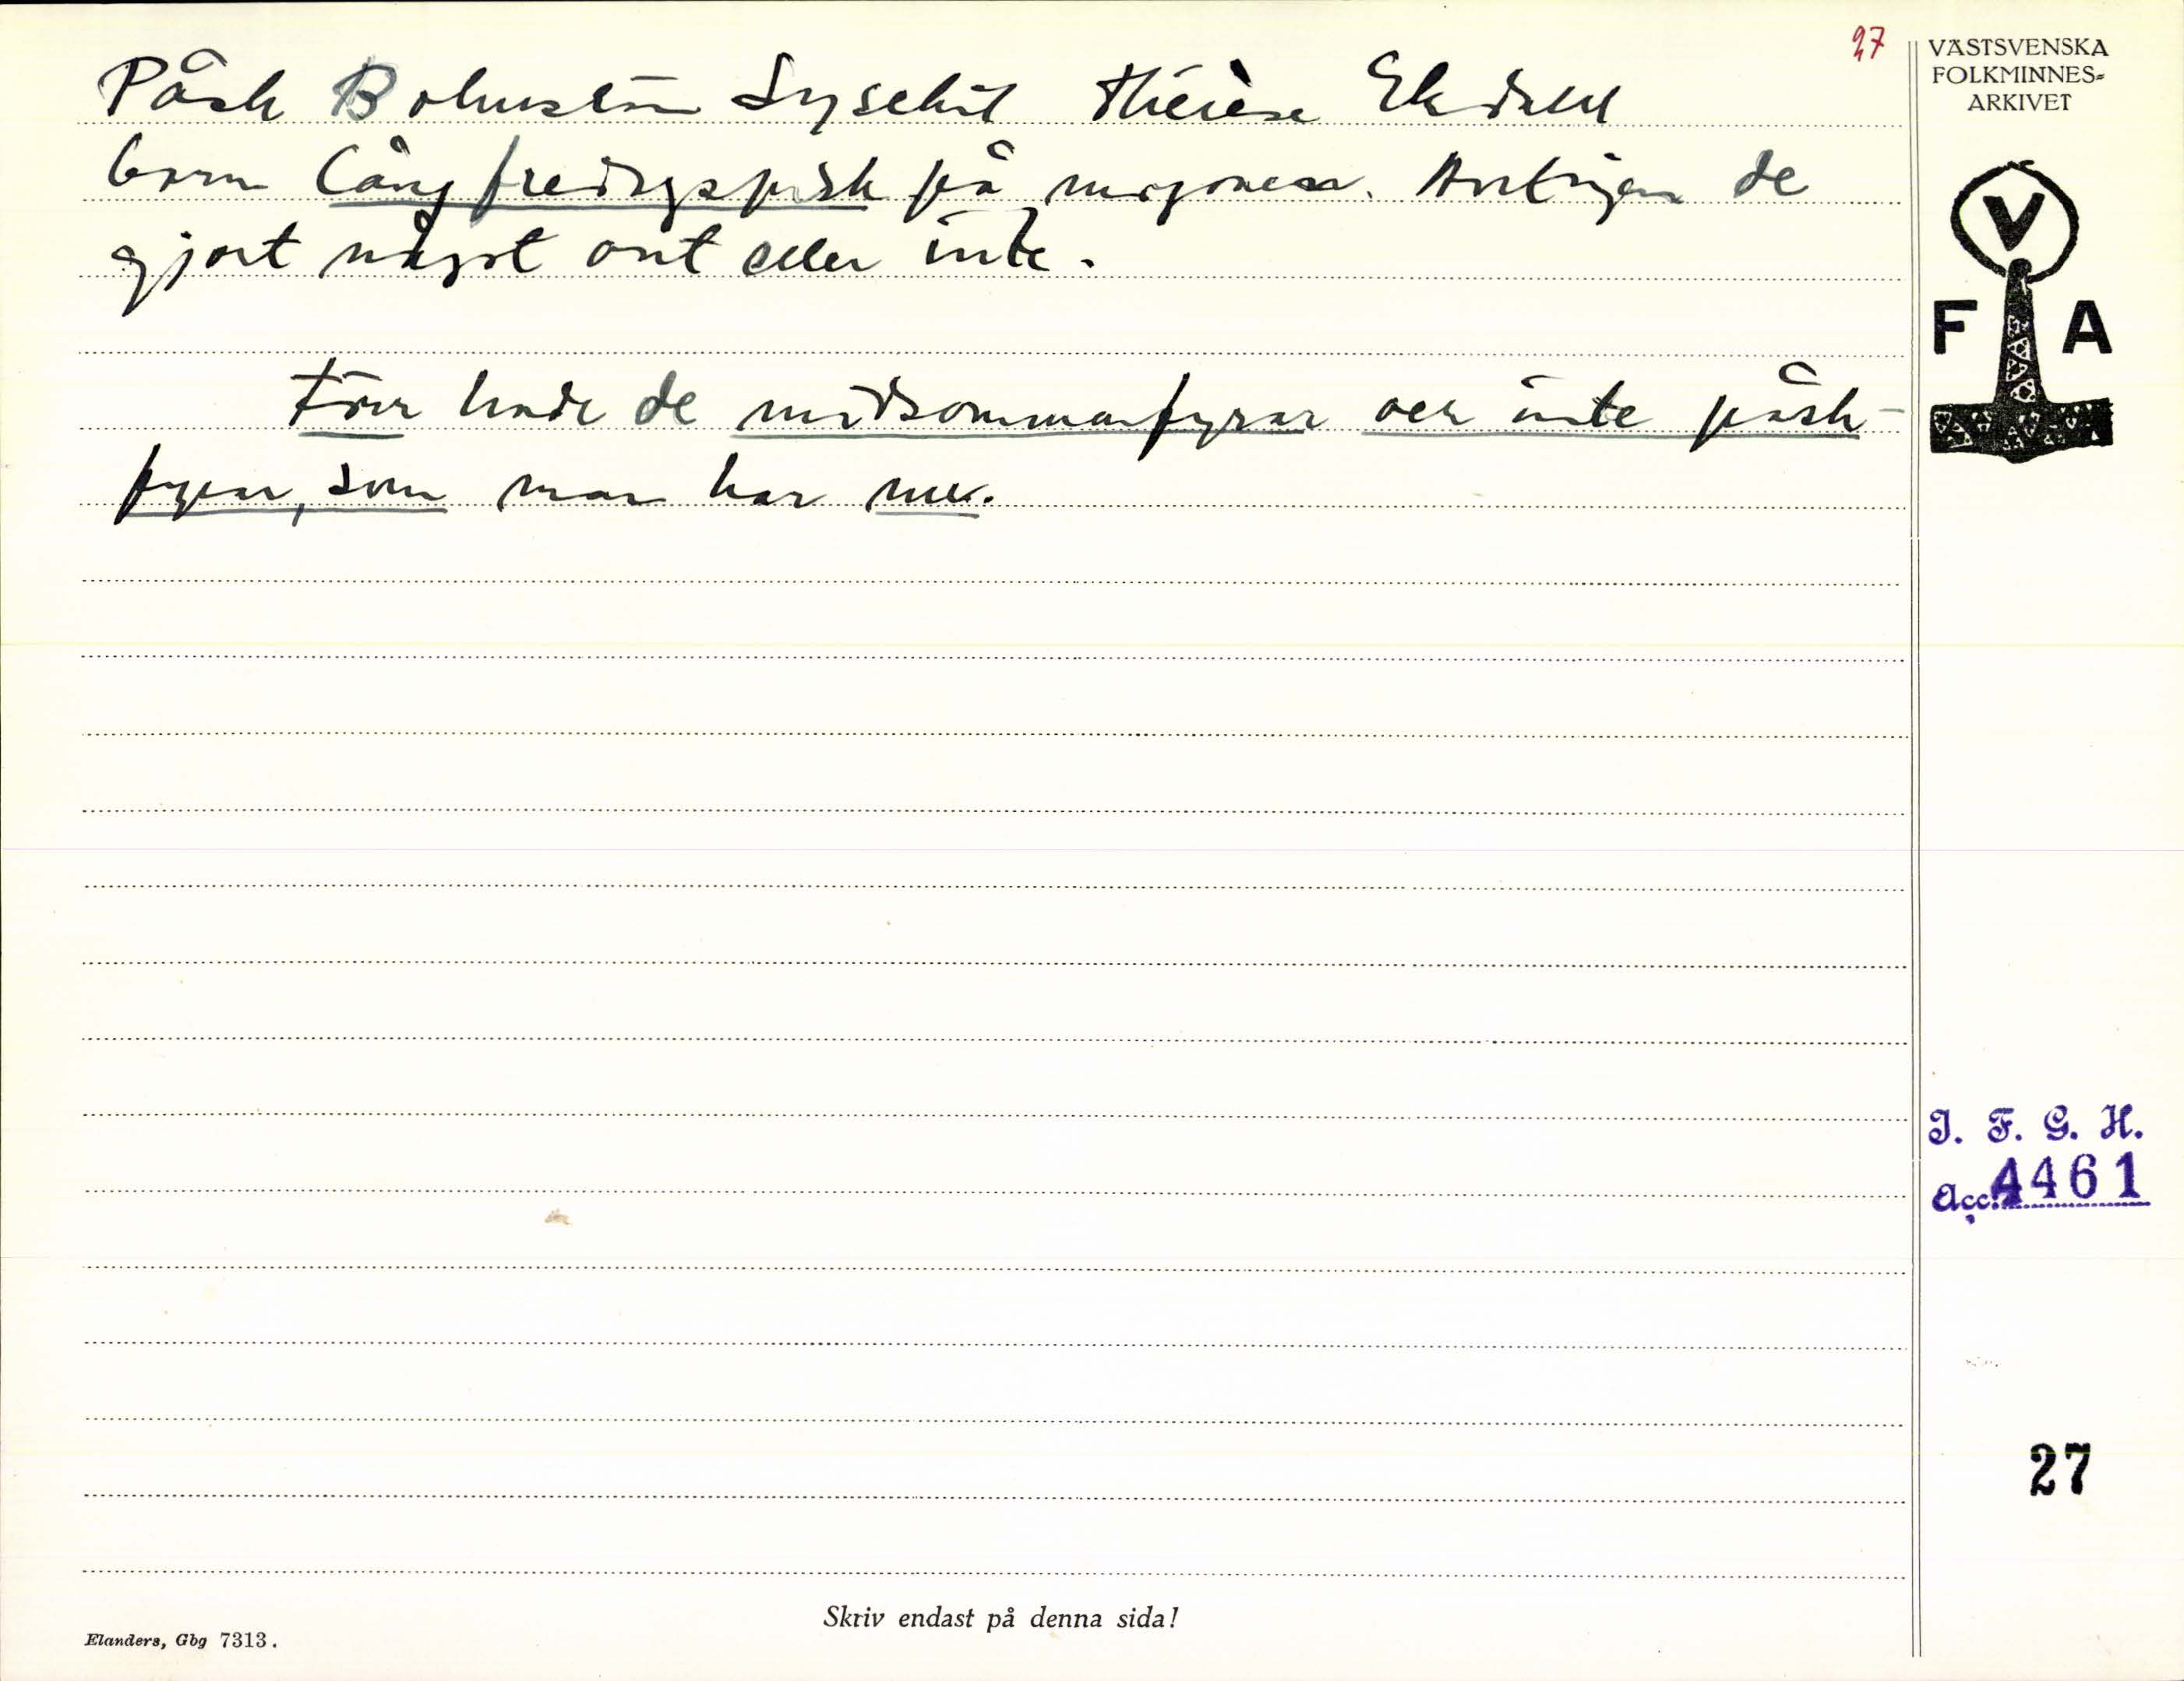 27
VÄSTSVENSKA
FOLKMINNES-
ARKIVET
Påsk Bohuslän Lysekil Thérèse Ekdahl
barn Långfredagspisk på morgonen. Antingen de
gjort något ont eller inte.
Förr hade de midsommarfyrar och inte påsk-
fyrar, som man har nu.
V
F A
I. F. G. H.
Acc. 4461
27
Skriv endast på denna sida!
Elanders, Gbg 7313.